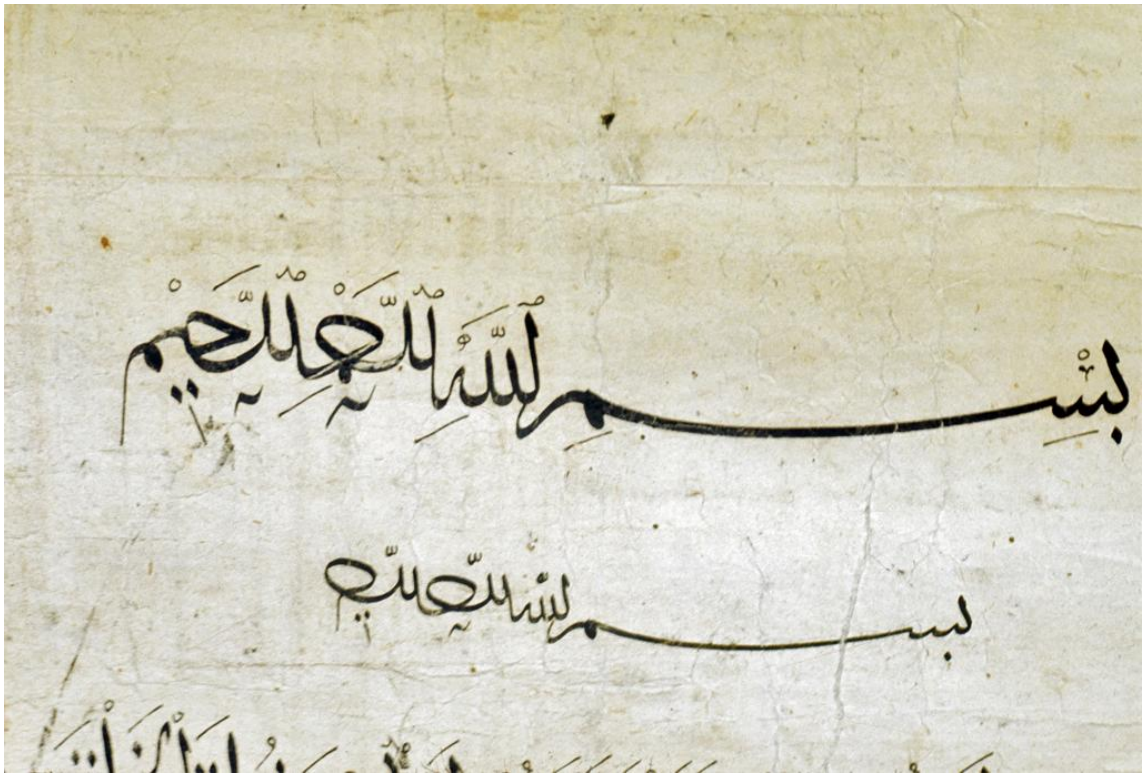 بِسْمِ ٱللَّهِ ٱلرَّحْمٰنِ ٱلرَّحِيْمِ
بسم الله الرحمن الرحيم